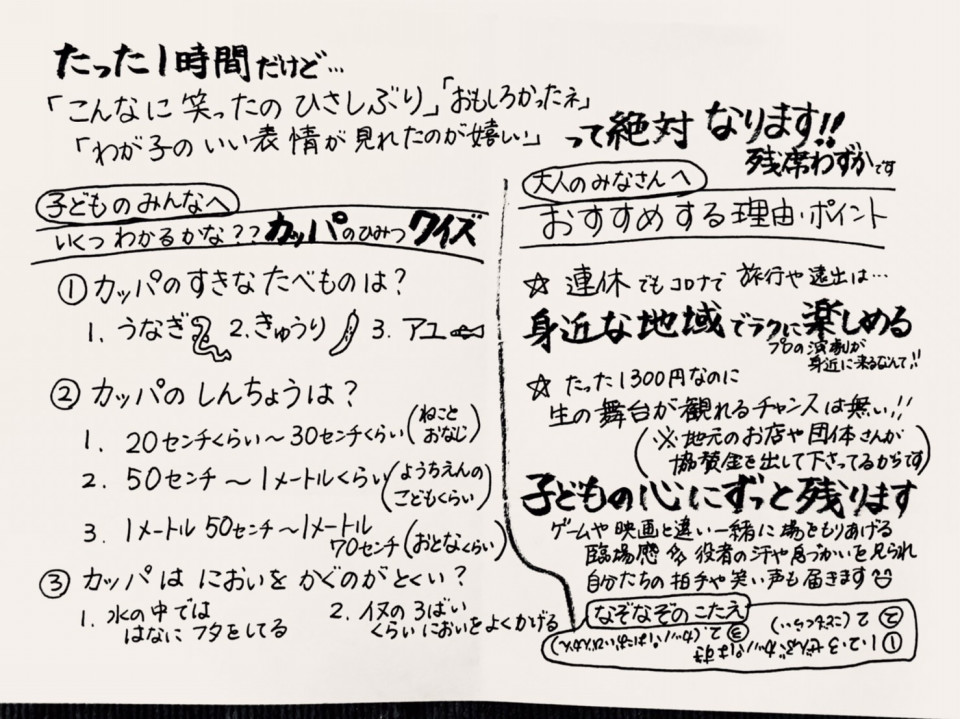 たった1時間だけど…
「こんなに笑ったのひさしぶり」「おもしろかったネ」
「わが子のいい表情が見れたのが嬉しい」 って絶対なります!!
残席わずかです
子どものみんなへ
いくつわかるかな??カッパのひみつクイズ
①カッパのすきなたべものは?
1. うなぎ 2. きゅうり 3. アユ
②カッパのしんちょうは?
1. 20センチくらい〜30センチくらい(ねことおなじ)
2. 50センチ〜1メートルくらい(ようちえんのこどもくらい)
3. 1メートル50センチ〜1メートル
70センチ(おとなくらい)
③カッパはにおいをかぐのがとくい?
1. 水の中では
はなにフタをしてる
2. イヌの3ばい
くらいにおいをよくかげる
大人のみなさんへ
おすすめする理由・ポイント
☆ 連休でもコロナで旅行や遠出は…
身近な地域でラクに楽しめる
プロの演劇が
身近に来るなんて!!
☆ たった1300円なのに
生の舞台が観れるチャンスは無い!!
(※地元のお店や団体さんが
協賛金を出して下さってるからです)
子どもの心にずっと残ります
ゲームや映画と違い一緒に場をもりあげる
臨場感 役者の汗や息づかいを見られ
自分たちの拍手や笑い声も届きます
なぞなぞのこたえ
①1と2と3ぜんぶ
② 2
③ 2